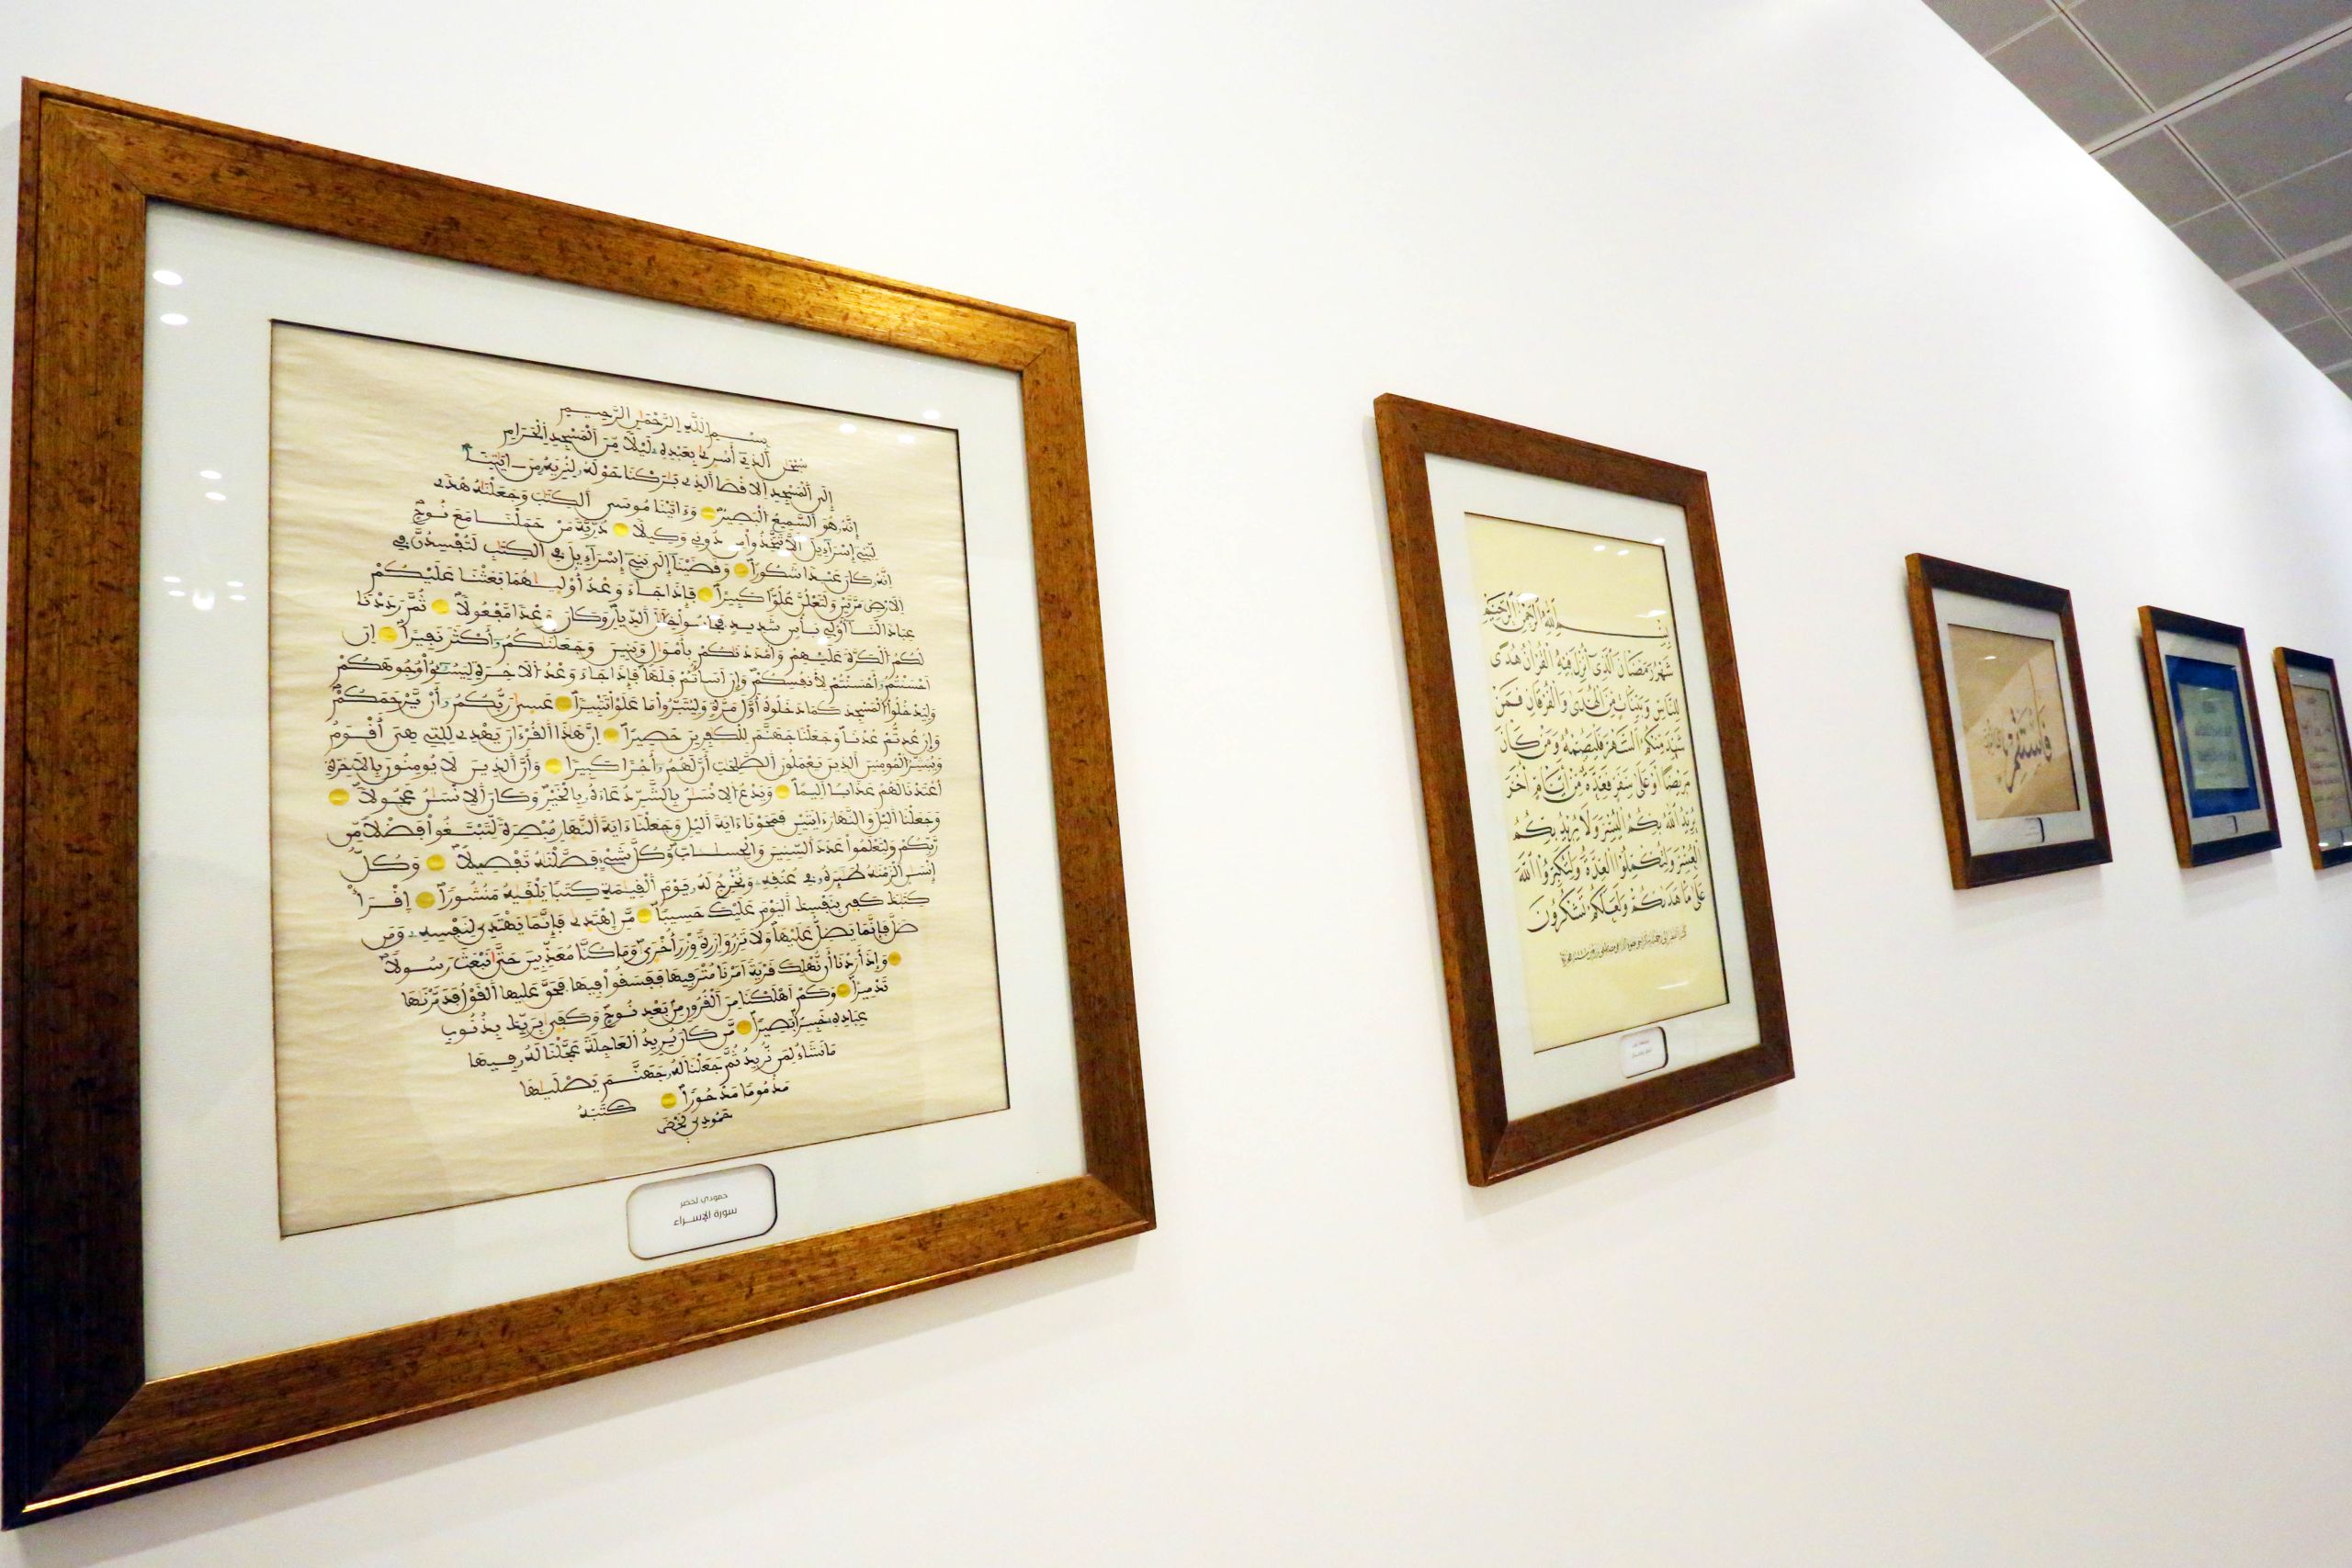 بِسْمِ اللَّهِ الرَّحْمَٰنِ الرَّحِيمِ
سُبْحَٰنَ الذِي أَسْرَىٰ بِعَبْدِهِ لَيْلًا مِّنَ الْمَسْجِدِ الْحَرَامِ
إلى المسجد الاقصا الذي بركنا حوله لنريه من ايتنا
إنه هو السميع البصير وءاتينا موسى الكتب وجعلنه هدى
لبني إسراءيل ألا تتخذوا من دوني وكيلا ذرية من حملنا مع نوح
انه كان عبدا شكورا وقضينا إلى بني إسراءيل في الكتب لتفسدن في
الارض مرتين ولتعلن علوا كبيرا فإذا جاء وعد أوليهما بعثنا عليكم
عبادا لنا أولي بأس شديد فجاسوا خلل الديار وكان وعدا مفعولا ثم رددنا
لكم الكرة عليهم وأمددنكم بأمول وبنين وجعلنكم أكثر نفيرا إن
احسنتم أحسنتم لأنفسكم وإن اسأتم فلها فإذا جاء وعد الاخرة ليسئوا وجوهكم
وليدخلوا المسجد كما دخلوه أول مرة وليتبروا ما علوا تتبيرا عسى ربكم أن يرحمكم
وإن عدتم عدنا وجعلنا جهنم للكفرين حصيرا إن هذا القرءان يهدي للتي هي أقوم
ويبشر المومنين الذين يعملون الصلحت أن لهم أجرا كبيرا وأن الذين لا يومنون بالاخرة
أعتدنا لهم عذابا اليما ويدع الانسن بالشر دعاءه بالخير وكان الانسن عجولا
وجعلنا اليل والنهار ءايتين فمحونا ءاية اليل وجعلنا ءاية النهار مبصرة لتبتغوا فضلا من
ربكم ولتعلموا عدد السنين والحساب وكل شيء فصلنه تفصيلا وكل
إنسن الزمنه طيره في عنقه ونخرج له يوم القيمة كتبا يلقيه منشورا إقرأ
كتبك كفى بنفسك اليوم عليك حسيبا من إهتدى فإنما يهتدي لنفسه ومن
ضل فإنما يضل عليها ولا تزر وازرة وزر أخرى وما كنا معذبين حتى نبعث رسولا
وإذا أردنا أن نهلك قرية امرنا مترفيها ففسقوا فيها فحق عليها القول فدمرنها
تدميرا وكم اهلكنا من القرون من بعد نوح وكفى بربك بذنوب
عباده خبيرا بصيرا من كان يريد العاجلة عجلنا له فيها
ما نشاء لمن نريد ثم جعلنا له جهنم يصليها
مذموما مدحورا كتبه
حمودي لخضر
حمودي لخضر
سورة الإسراء
بِسْمِ اللهِ الرَّحْمٰنِ الرَّحِيمِ
شَهْرُ رَمَضَانَ الَّذِي أُنْزِلَ فِيهِ الْقُرْآنُ هُدًى
لِلنَّاسِ وَبَيِّنَاتٍ مِنَ الْهُدَى وَالْفُرْقَانِ فَمَنْ
شَهِدَ مِنْكُمُ الشَّهْرَ فَلْيَصُمْهُ وَمَنْ كَانَ
مَرِيضًا أَوْ عَلَى سَفَرٍ فَعِدَّةٌ مِنْ أَيَّامٍ أُخَرَ
يُرِيدُ اللهُ بِكُمُ الْيُسْرَ وَلَا يُرِيدُ بِكُمُ
الْعُسْرَ وَلِتُكْمِلُوا الْعِدَّةَ وَلِتُكَبِّرُوا اللهَ
عَلَى مَا هَدٰىكُمْ وَلَعَلَّكُمْ تَشْكُرُونَ